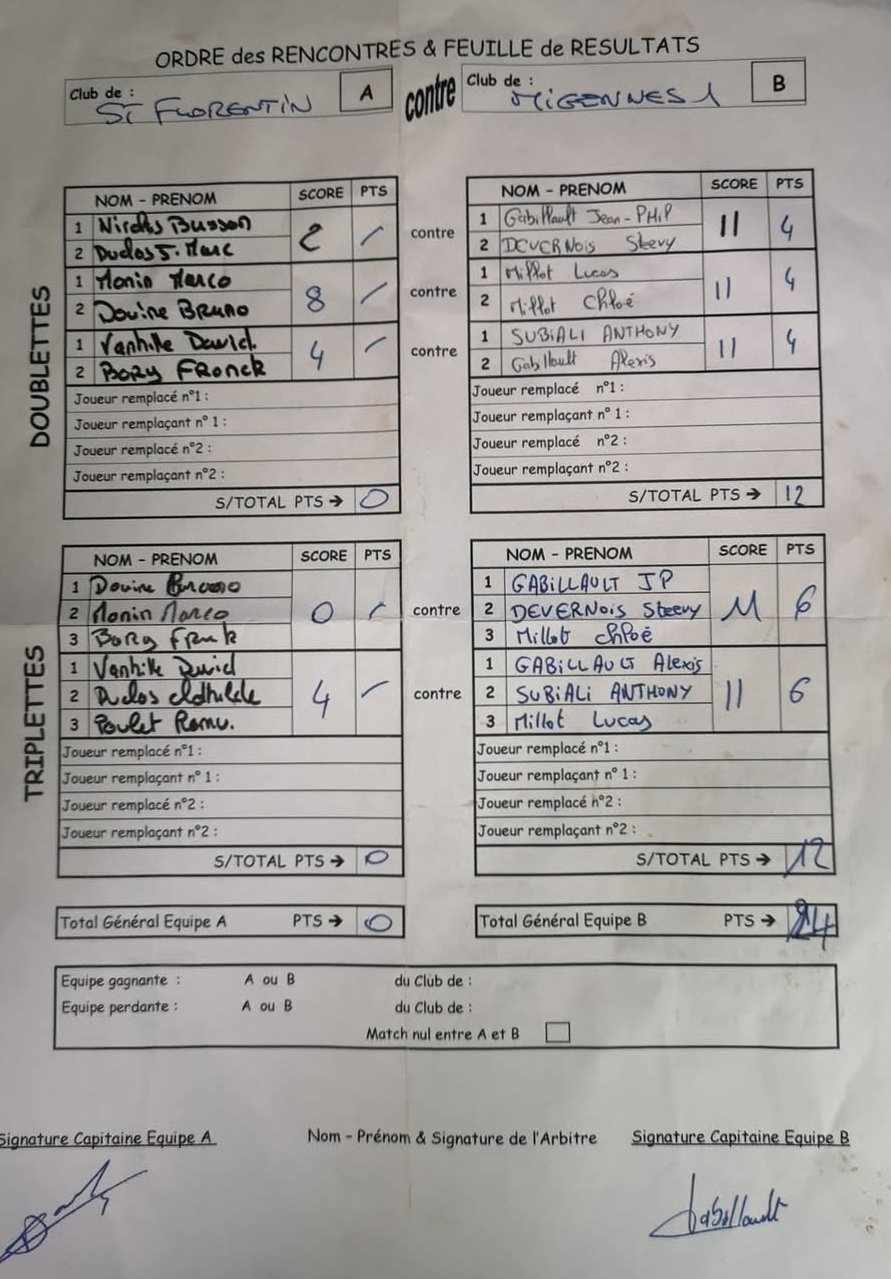 ORDRE des RENCONTRES & FEUILLE de RESULTATS
Club de : ST FLORENTIN A contre Club de : MIGENNES 1 B
DOUBLETTES
NOM - PRENOM SCORE PTS NOM - PRENOM SCORE PTS
1 Nicolas Busson 1 Gabillault Jean-PHIP
2 Duclos J. Marc 2 / contre 2 DEVERNois Steevy 11 4
1 Monin Marco 1 Millot Lucas
2 Douine BRUNO 8 / contre 2 Millot Chloé 11 4
1 Vanhille David 1 SUBiALi ANTHONY
2 BORY FRANCK 4 / contre 2 Gabillault Alexis 11 4
Joueur remplacé n°1 : Joueur remplacé n°1 :
Joueur remplaçant n° 1 : Joueur remplaçant n° 1 :
Joueur remplacé n°2 : Joueur remplacé n°2 :
Joueur remplaçant n°2 : Joueur remplaçant n°2 :
S/TOTAL PTS → 0 S/TOTAL PTS → 12
TRIPLETTES
NOM - PRENOM SCORE PTS NOM - PRENOM SCORE PTS
1 Douine Bruno 1 GABILLAULT JP
2 Monin Marco 0 / contre 2 DEVERNois Steevy 11 6
3 Bory Franck 3 Millot Chloé
1 Vanhille David 1 GABILLAULT Alexis
2 Duclos Clothilde 4 / contre 2 SUBiALi ANTHONY 11 6
3 Poulet Romu. 3 Millot Lucas
Joueur remplacé n°1 : Joueur remplacé n°1 :
Joueur remplaçant n° 1 : Joueur remplaçant n° 1 :
Joueur remplacé n°2 : Joueur remplacé n°2 :
Joueur remplaçant n°2 : Joueur remplaçant n°2 :
S/TOTAL PTS → 0 S/TOTAL PTS → 12
Total Général Equipe A PTS → 0 Total Général Equipe B PTS → 24
Equipe gagnante : A ou B du Club de :
Equipe perdante : A ou B du Club de :
Match nul entre A et B
Signature Capitaine Equipe A Nom - Prénom & Signature de l'Arbitre Signature Capitaine Equipe B
Gabillault